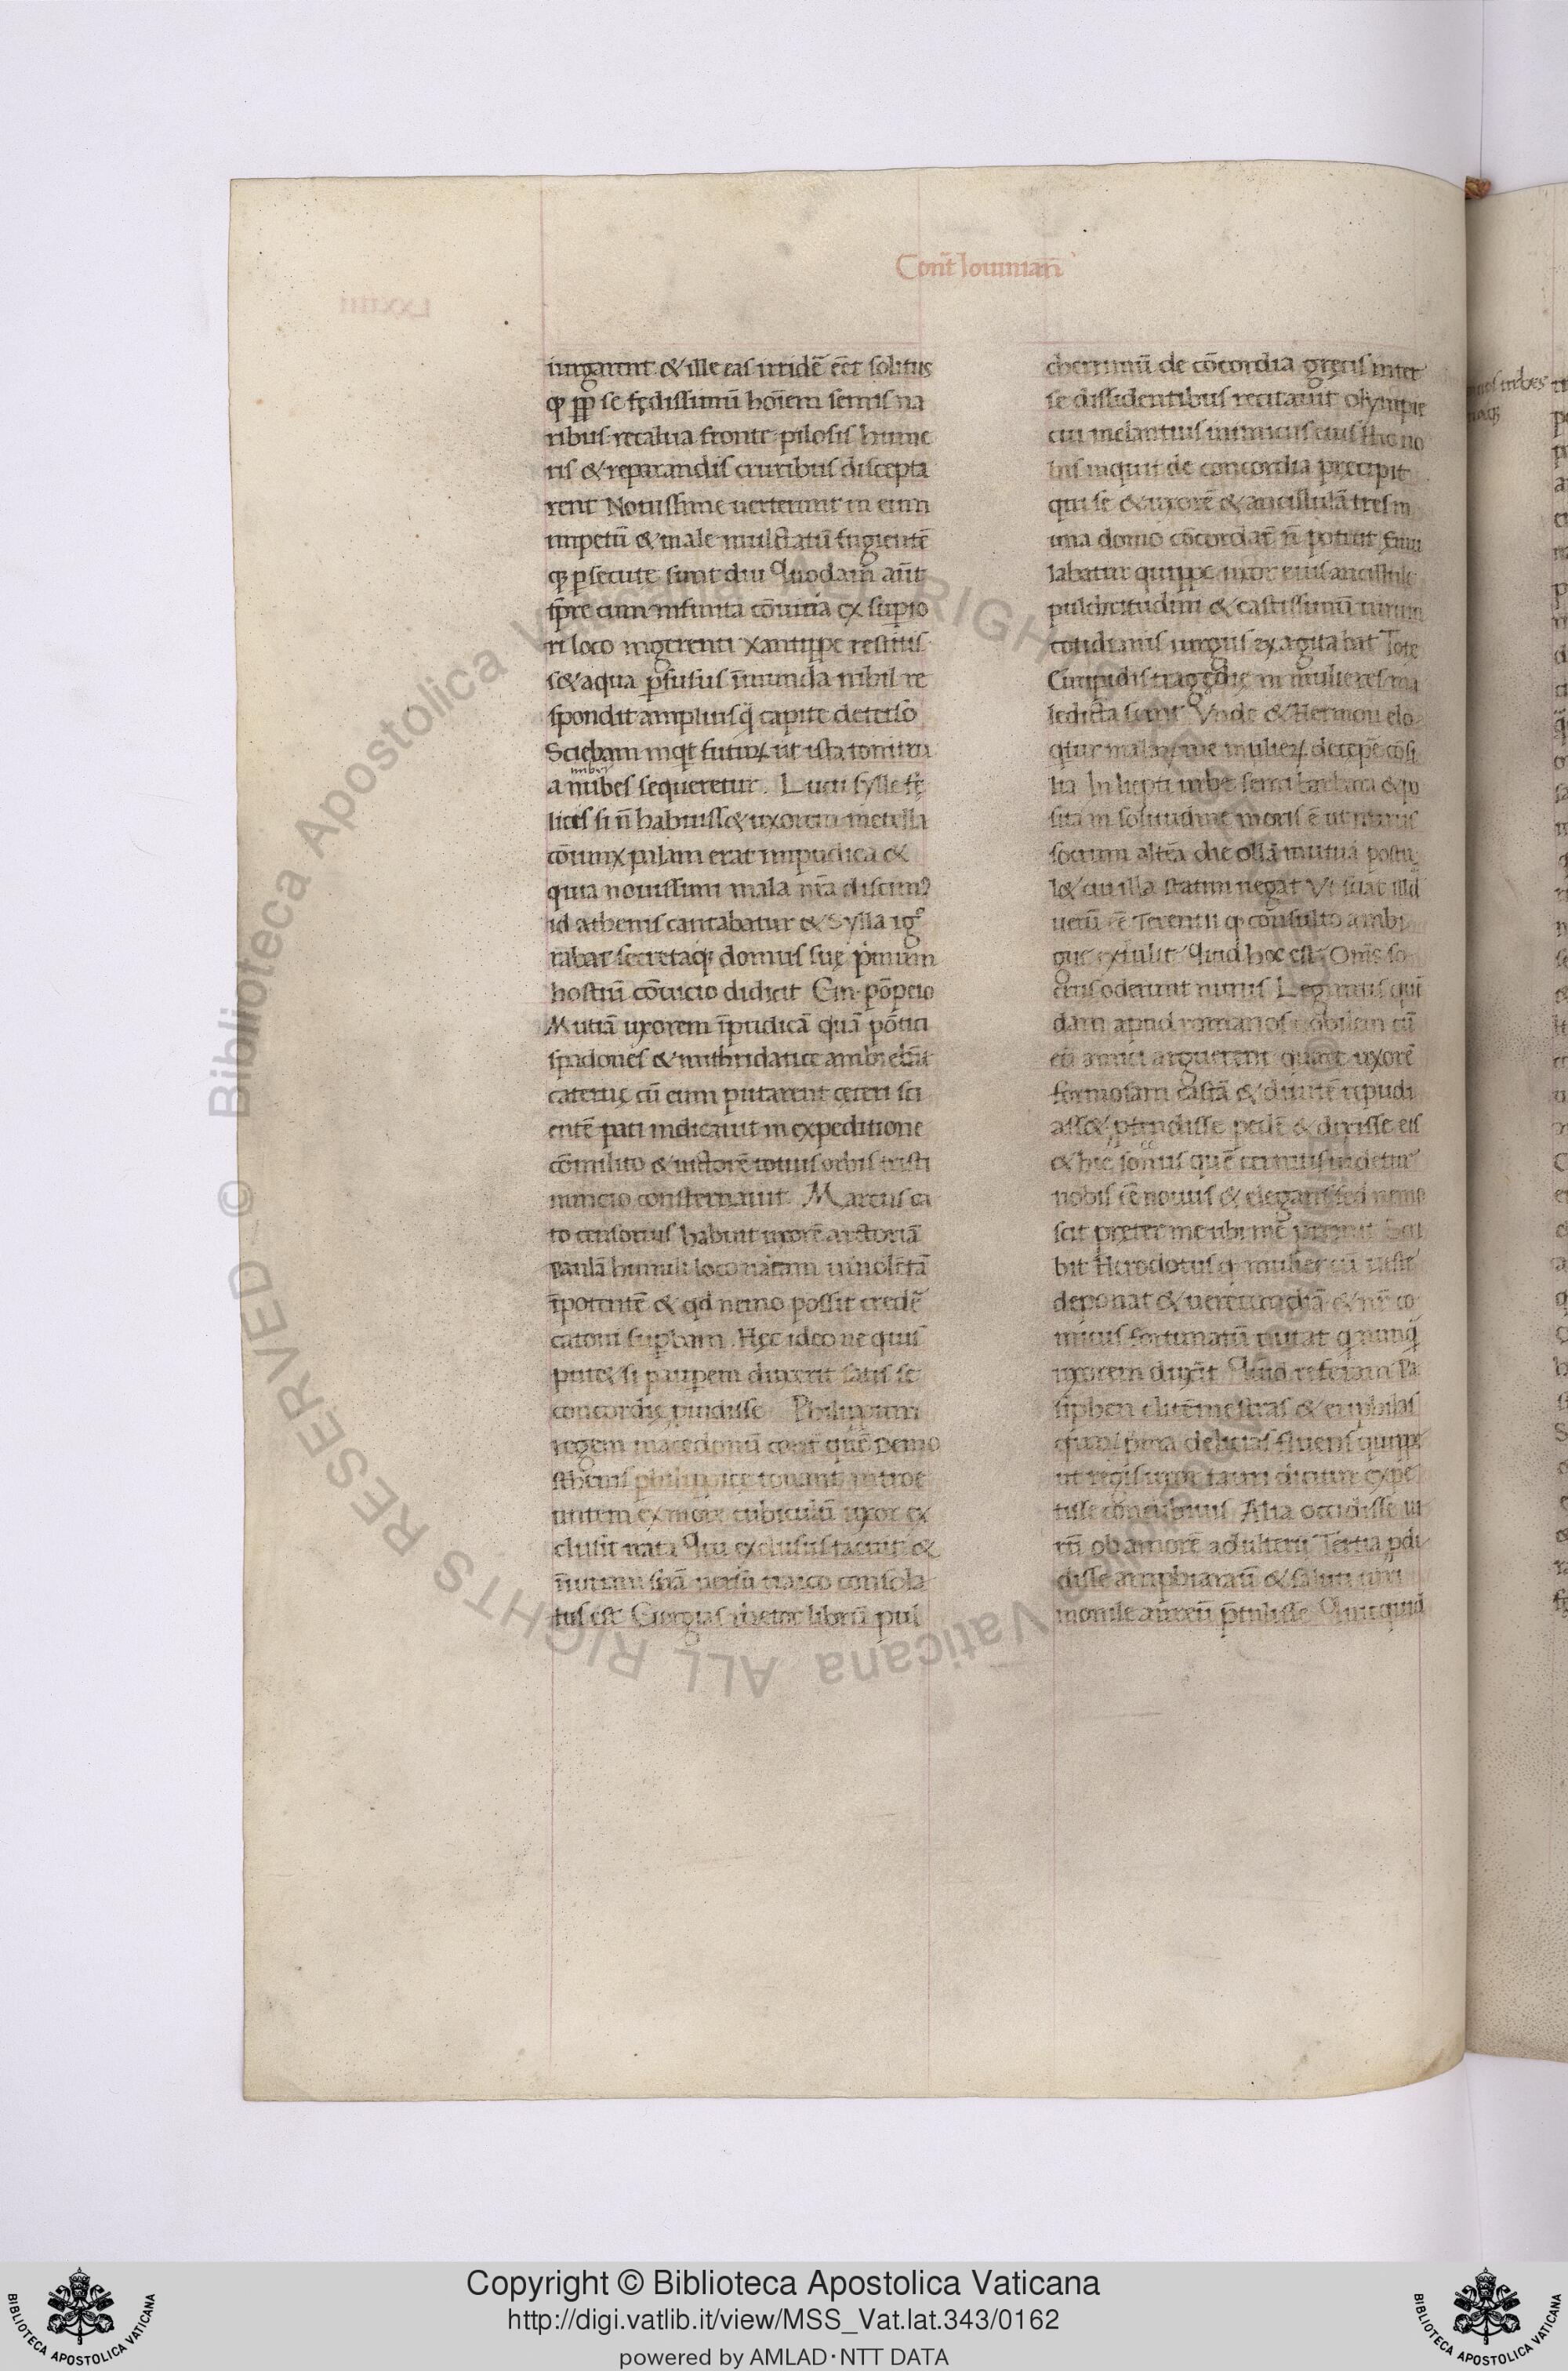 Cont̄ Iouinian̄
LXXIIII
iurgarent & ille eas irridē eēt solitus
qp̄ ꝓp̄ se fędissimū hoīem semis na
ribus recalua fronte pilosis hume
ris & reparandis cruribus discepta
rent Nouissime uerterunt in eum
impetū & male mulctatū fugientē
qꝫ ꝑsecute sunt diu Quodam aūt
tp̄re cum infinita cōuitia ex suꝑio
ri loco ingerenti xantippe restitis
s& aqua ꝑfusus īmunda nihil re
spondit amplius q̄ capite deterso
Sciebam inqt̄ futuꝝ ut ista tonitru
imber
a nubes sequeretur. Lucii sylle fę
licis si n̄ habuiss& uxorem metella
cōiunx palam erat impudica &
quia nouissimi mala nr̄a discimꝰ
id athenis cantabatur & Sylla ig°
rabat secretaqꝫ domus suę primum
hostiū cōuicio didicit Cm. pōpeio
Mutiā uxorem īpudicā quā pōtici
spadones & mithridatice ambiebāt
cateruę cū eum putarent ceteri sci
entē pati indicauit in expeditione
cōmilito & uictorē totius orbis tristi
nuncio consternauit Marcus ca
to censorius habuit uxorē arctoriā
paulā humili loco natam uinolētā
īpotentē & qd nemo possit credē
catoni suꝑbam. Hęc ideo ne quis
put& si pauꝑem duxerit satis se
concordię ꝓuidisse Philippum
regem macedonū cont̄ quē Demo
sthenis philippice tonant introe
untem ex more cubiculū uxor ex
clusit irata Qui exclusus tacuit &
iniuriam suā uersu traico consola
tus est Giorgias rhetor librū pul
cherrimū de cōcordia gręcis inter
se dissidentibus recitauit olympię
cui melantius inimicus eius Hic no
bis inquit de concordia precipit
qui se & uxorē & ancillulā tres in
una domo cōcordar̄ n̄ potuit Emu
labatur quippe uxor eius ancillule
pulchritudini & castissimū uirum
cotidianis iurgiis exagitabat Tote
Euripidis tragędię in mulieres ma
ledicta sunt Vnde & Hermon elo
qtur malarū me mulieꝝ decepē cōsi
lia In liepti urbe semi barbara & po
sita in solitudine moris ē ut nurus
socrum altēa die ollā mutuā postu
l& cui illa statim negat Vt scias illd̄
uerū eē Terentii q cōnsulto ambi
gue extulit Quid hoc est Om̄s so
crus oderunt nurus Legimus qui
dam apud romanos nobilem cū
eū amici arguerent quare uxorē
formosam castā & diuitē repudi
ass& ꝓtendisse pedē & dixisse eis
& hic soccus quē cernitis uidetur
nobis ēē nouus & elegans sed nemo
scit preter me ubi me premit Scri
bit Herodotus q mulier cū ueste
deponat & uerecundiā & nr̄ co
micus fortunatū putat q nunq̄
uxorem duxit Quid referam Pa
siphen clitēmestras & eriphilas
quaꝝ prima deliciis fluens quippe
ut regis uxor tauri dicitur expe
tisse concubitus Alia occidisse ui
rū ob amorē adulteri Tertia ꝓdi
disse amphiaraū & saluti uiri
monile aureū p̄tulisse Quicquid
Copyright © Biblioteca Apostolica Vaticana
http://digi.vatlib.it/view/MSS_Vat.lat.343/0162
powered by AMLAD·NTT DATA
© Biblioteca Apostolica Vaticana ALL RIGHTS RESERVED
BIBLIOTECA APOSTOLICA VATICANA
BIBLIOTECA APOSTOLICA VATICANA